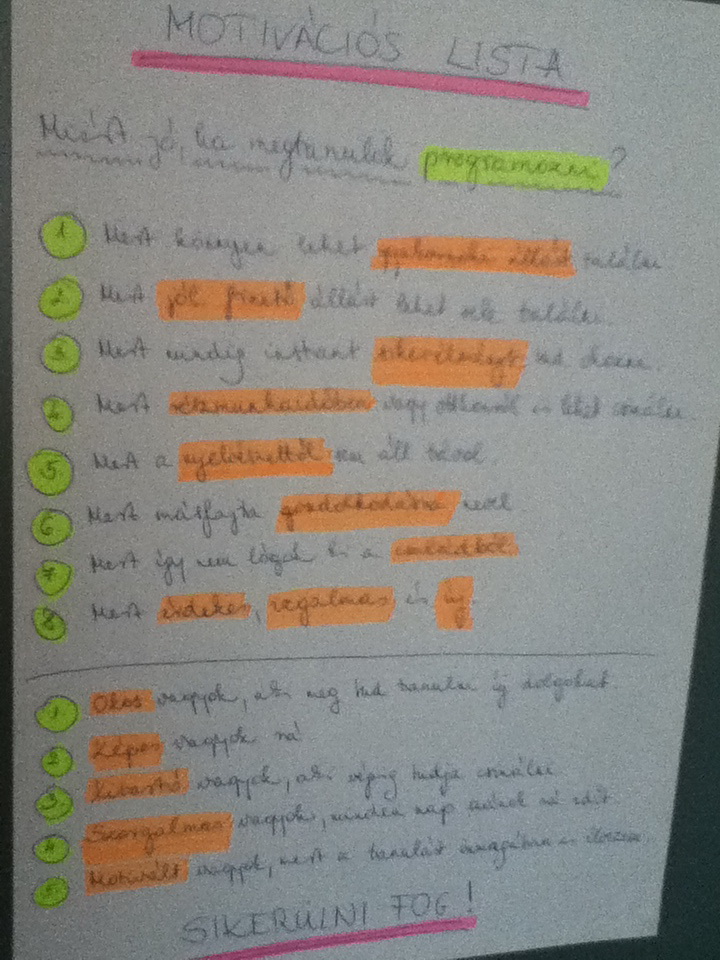 MOTIVÁCIÓS LISTA
Miért jó, ha megtanulok programozni?
1 Mert könnyen lehet állást találni
2 Mert jól fizető állást lehet vele találni.
3 Mert mindig instant sikerélményt tud okozni.
4 Mert részmunkaidőben vagy otthonról is lehet csinálni
5 Mert a nyelvészettől sem áll távol.
6 Mert másfajta gondolkodásra nevel
7 Mert így nem lógok ki a családból
8 Mert érdekes, izgalmas és új
1 Okos vagyok, aki meg tud tanulni új dolgokat.
2 Képes vagyok rá
3 Kitartó vagyok, aki végig tudja csinálni
4 Szorgalmas vagyok, minden nap rá időt
5 Motivált vagyok, mert a tanulást önmagában is élvezem
SIKERÜLNI FOG!